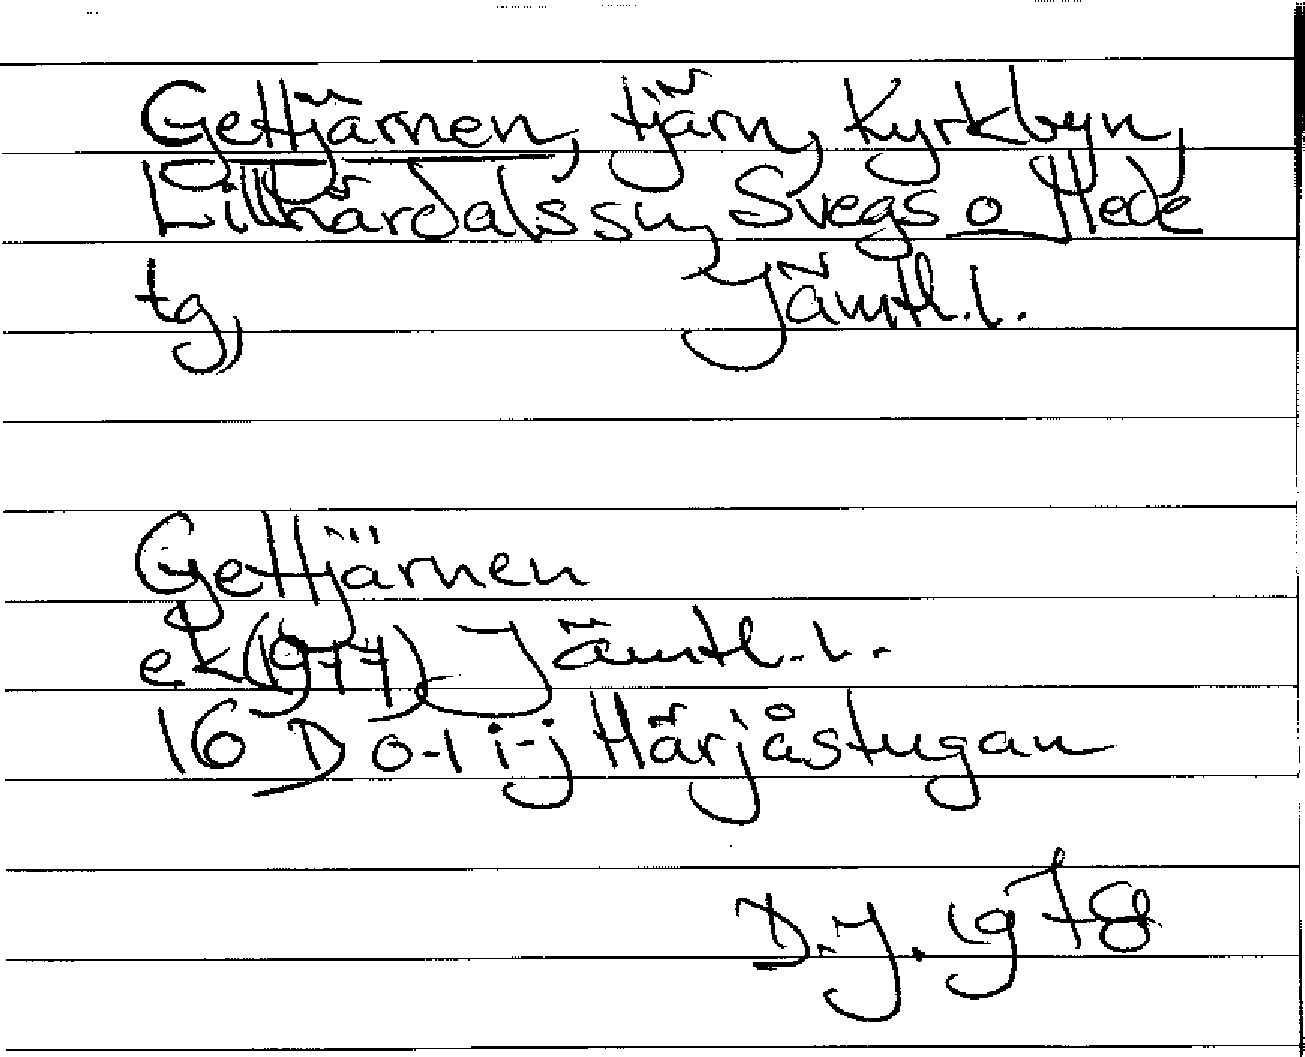 Gettjärnen, tjärn, Kyrkbyn,
Lillhärdals sn, Svegs o Hede
tg, Jämtl.l.
Gettjärnen
ek (1977) Jämtl.l.
16 D 0-1 i-j Härjåstugan
D.J. 1978